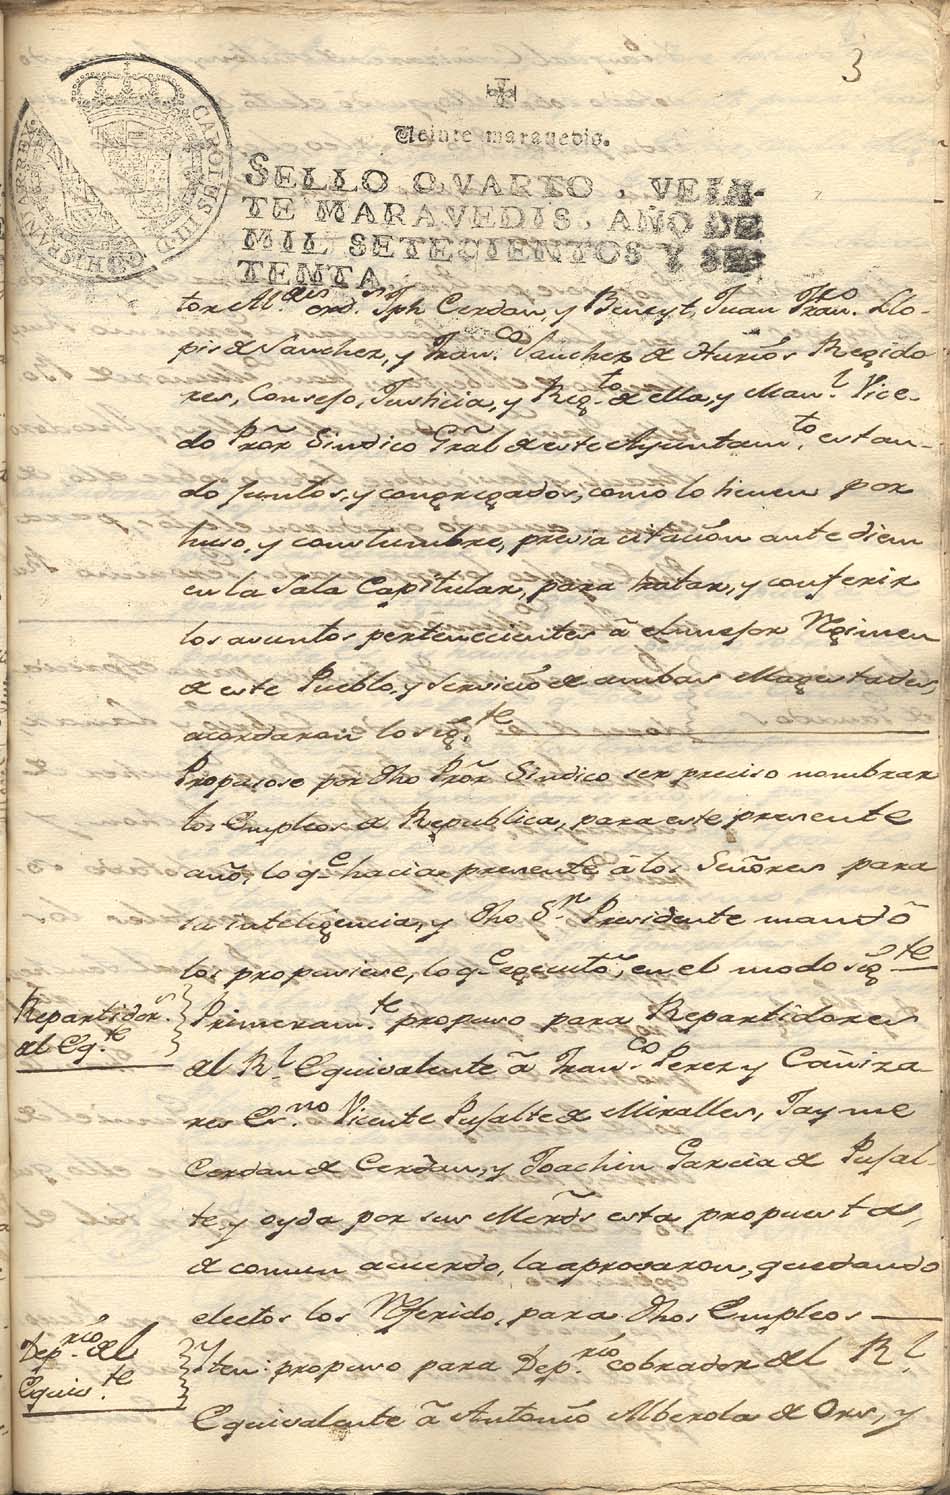 3
CAROLUS III D G HISPANIAR REX
Veinte maravedis.
SELLO QVARTO, VEIN-
TE MARAVEDIS, AÑO DE
MIL SETECIENTOS Y SE-
TENTA
tor Al.des ord.s Jph Cerdan, y Beneyt, Juan Fran.co Llo-
pis de Sanchez, y Fran.co Sanchez de Hurios Regido
res, Consejo, Justicia, y Reg.to de ella, y Man.l Vice-
do Prõr Sindico Grãl de este Ayuntam.to, estan-
do juntos, y congregados, como lo tienen por
huso, y constumbre, previa citacion ante diem
en la Sala Capitular, para tratar, y conferir
los asuntos pertenecientes â el mejor Regimen
de este Pueblo, y servicio de ambas Magestades,
acordaron lo sig.te
Propusose por dho Prõr Sindico ser preciso nombrar
los Empleos de Republica, para este presente
año, lo q.e hacia presente â los Señores para
su inteligencia, y dho S.r Presidente mandò
los propusiese, lo q.e egecutò, en el modo sig.te
Repartidor.s
del Eq.te
Primeram.te propuso para Repartidores
del R.l Equivalente â Fran.co Perez y Cañiza-
res Es.no Vicente Pujalte de Miralles, Jayme
Cerdan de Cerdan, y Joachin Garcia de Pujal-
te, y oyda por sus Mercds esta propuesta,
de comun acuerdo, la aprovaron, quedando
electos los Referido, para dhos Empleos
Dep.rio del
Equiv.te
Iten: propuso para Dep.rio cobrador del R.l
Equivalente â Antonio Alberola de Ors, y